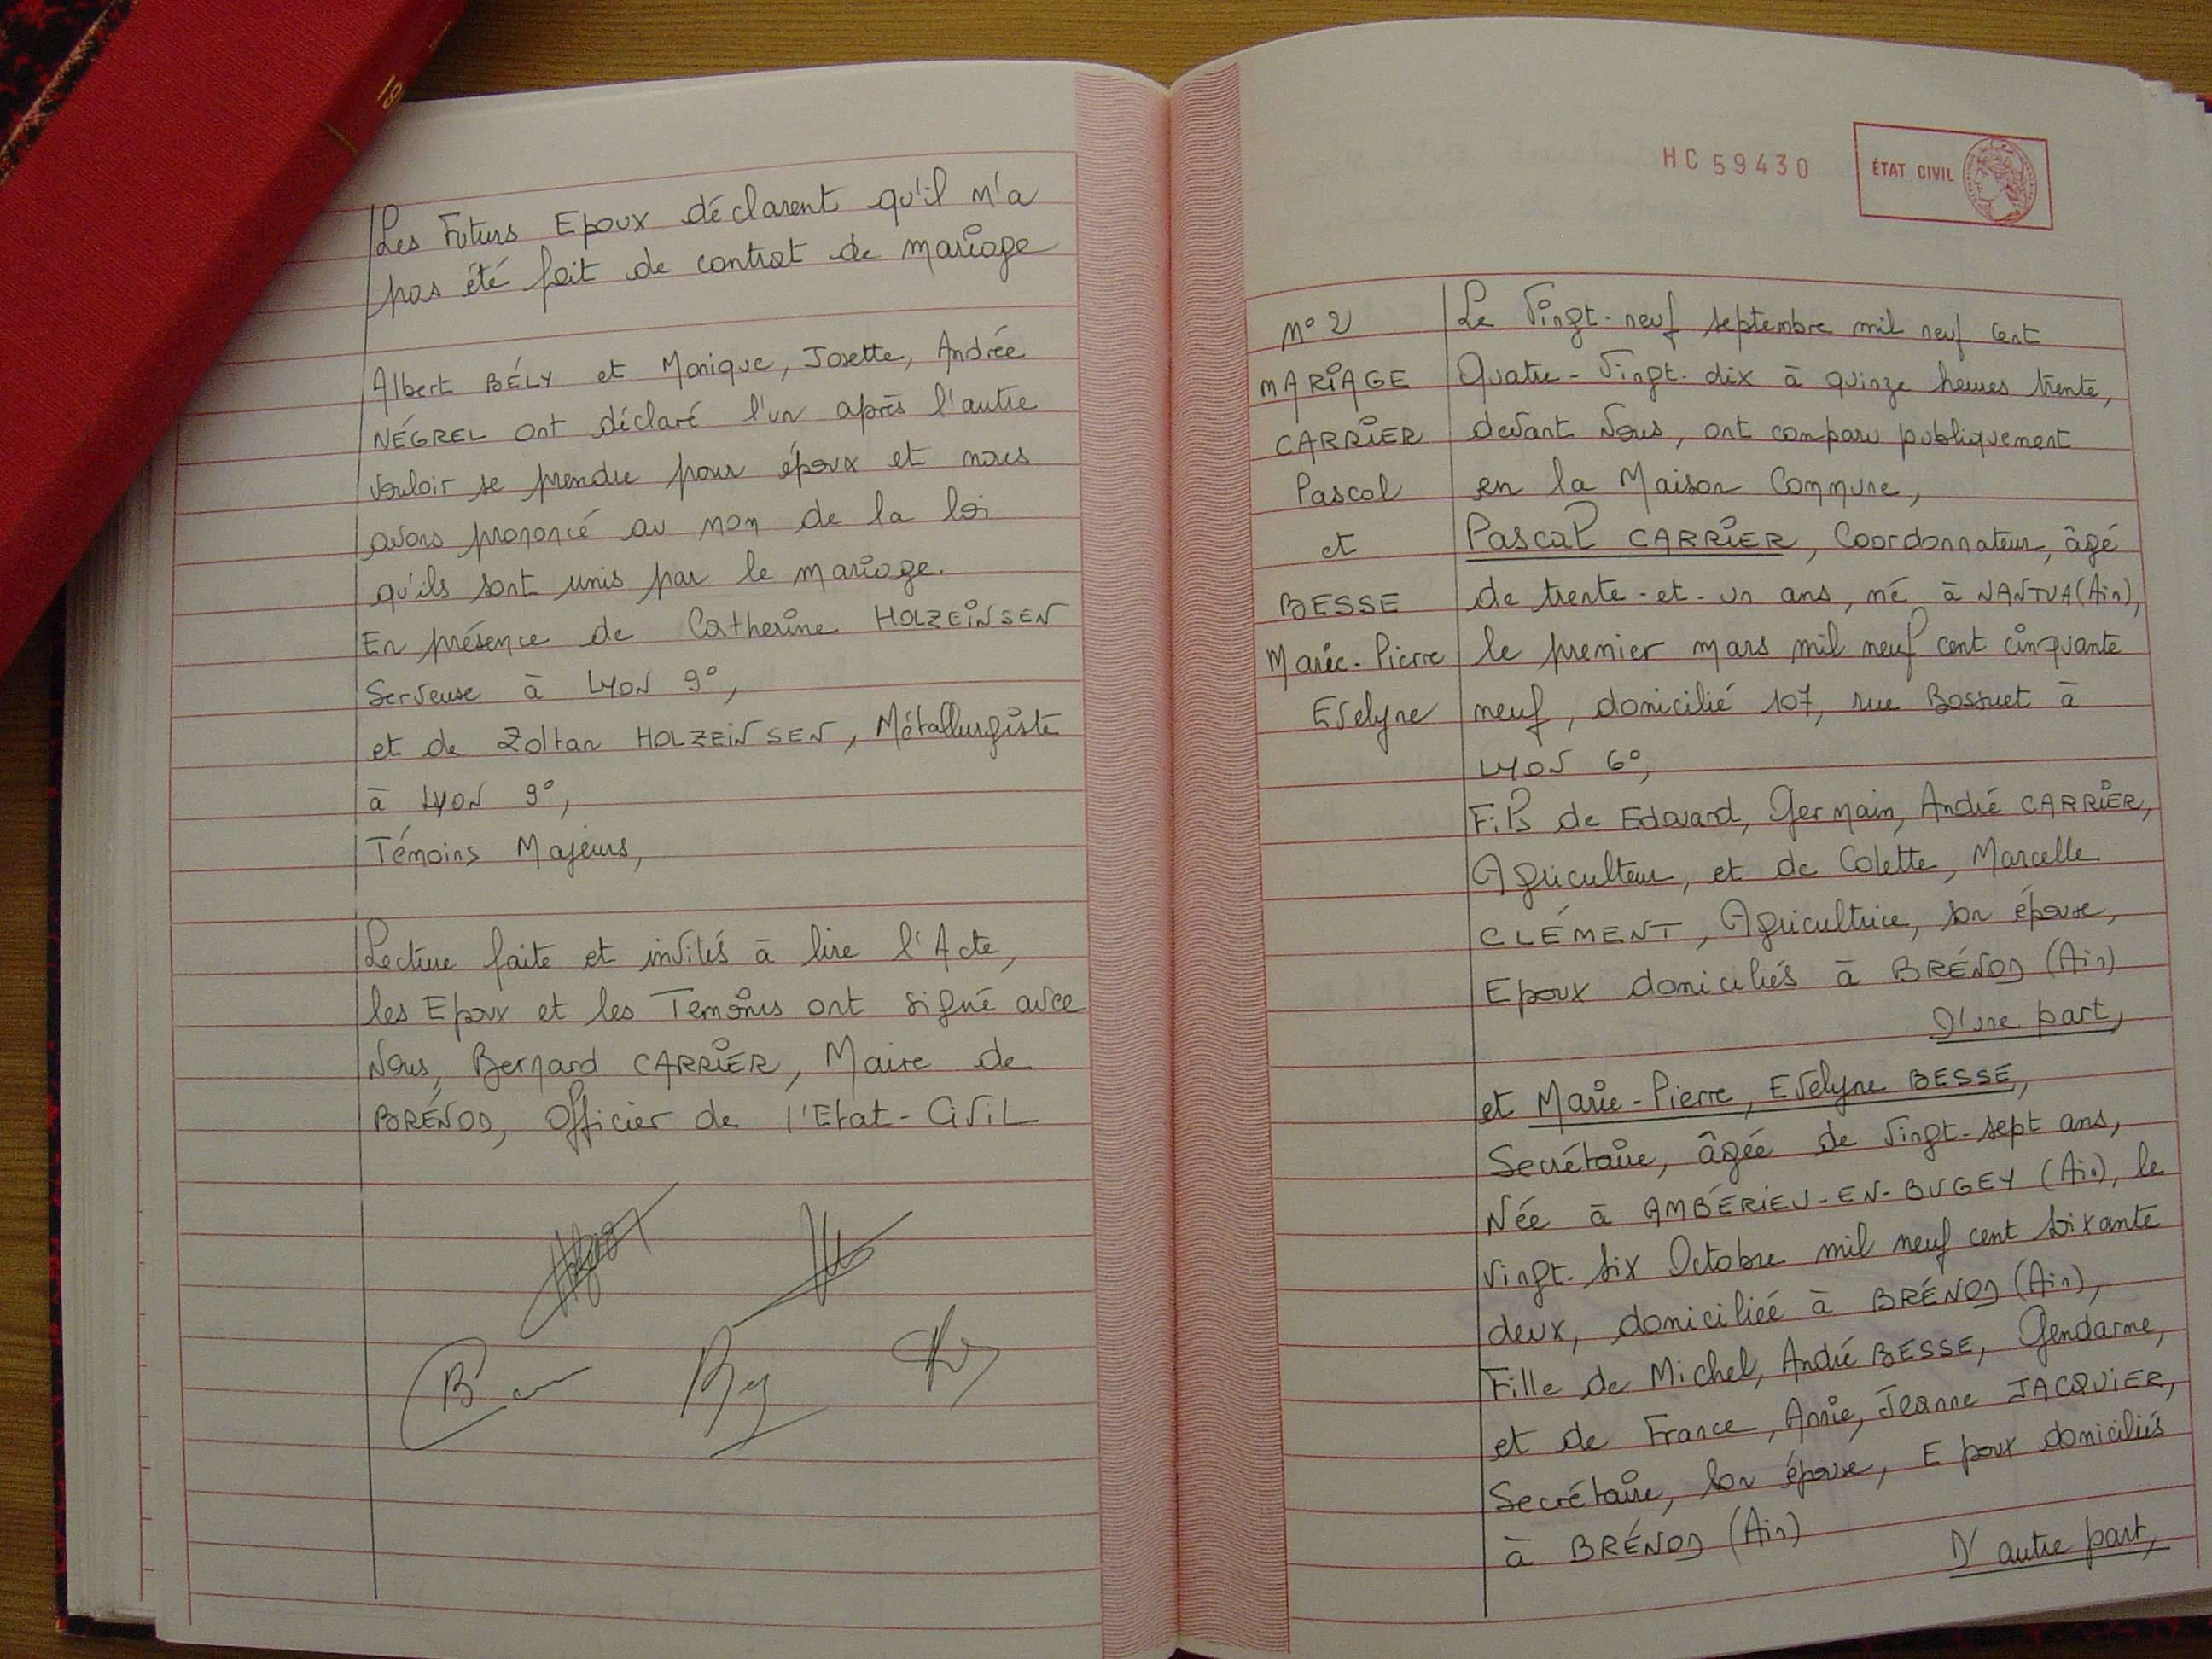 19
Les Futurs Epoux déclarent qu'il n'a
pas été fait de contrat de mariage
Albert BÉLY et Monique, Josette, Andrée
NÉGREL ont déclaré l'un après l'autre
vouloir se prendre pour époux et nous
avons prononcé au nom de la loi
qu'ils sont unis par le mariage.
En présence de Catherine HOLZEINSEN
Serveuse à LYON 9°,
et de Zoltan HOLZEINSEN, Métallurgiste
à LYON 9°,
Témoins Majeurs,
Lecture faite et invités à lire l'Acte,
les Epoux et les Temoins ont signé avec
Nous, Bernard CARRIER, Maire de
BRÉNOD, Officier de l'Etat-Civil
HC59430
ÉTAT CIVIL
N° 2
MARIAGE
CARRIER
Pascal
et
BESSE
Marie-Pierre
Evelyne
Le Vingt-neuf septembre mil neuf cent
Quatre-Vingt-dix à quinze heures trente,
devant Nous, ont comparu publiquement
en la Maison Commune,
Pascal CARRIER, Coordonnateur, âgé
de trente-et-un ans, né à NANTUA (Ain),
le premier mars mil neuf cent cinquante
neuf, domicilié 107, rue Bossuet à
LYON 6°,
Fils de Edouard, Germain, André CARRIER,
Agriculteur, et de Colette, Marcelle
CLÉMENT, Agricultrice, son épouse,
Epoux domiciliés à BRÉNOD (Ain)
D'une part,
et Marie-Pierre, Evelyne BESSE,
Secrétaire, âgée de Vingt-sept ans,
Née à AMBÉRIEU-EN-BUGEY (Ain), le
vingt-six Octobre mil neuf cent soixante
deux, domiciliée à BRÉNOD (Ain),
Fille de Michel, André BESSE, Gendarme,
et de France, Annie, Jeanne JACQUIER,
Secrétaire, son épouse, Epoux domiciliés
à BRÉNOD (Ain)
D'autre part,